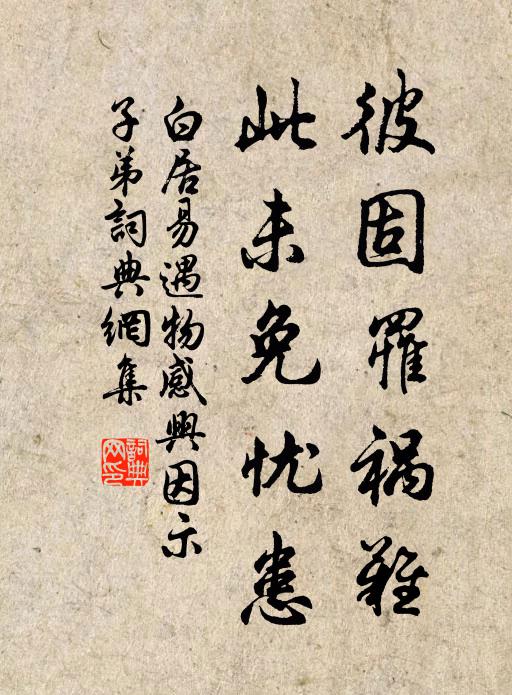 彼固罹祸难
此未免忧患
白居易遇物感興因示
子弟詞典網集
詞典
网印